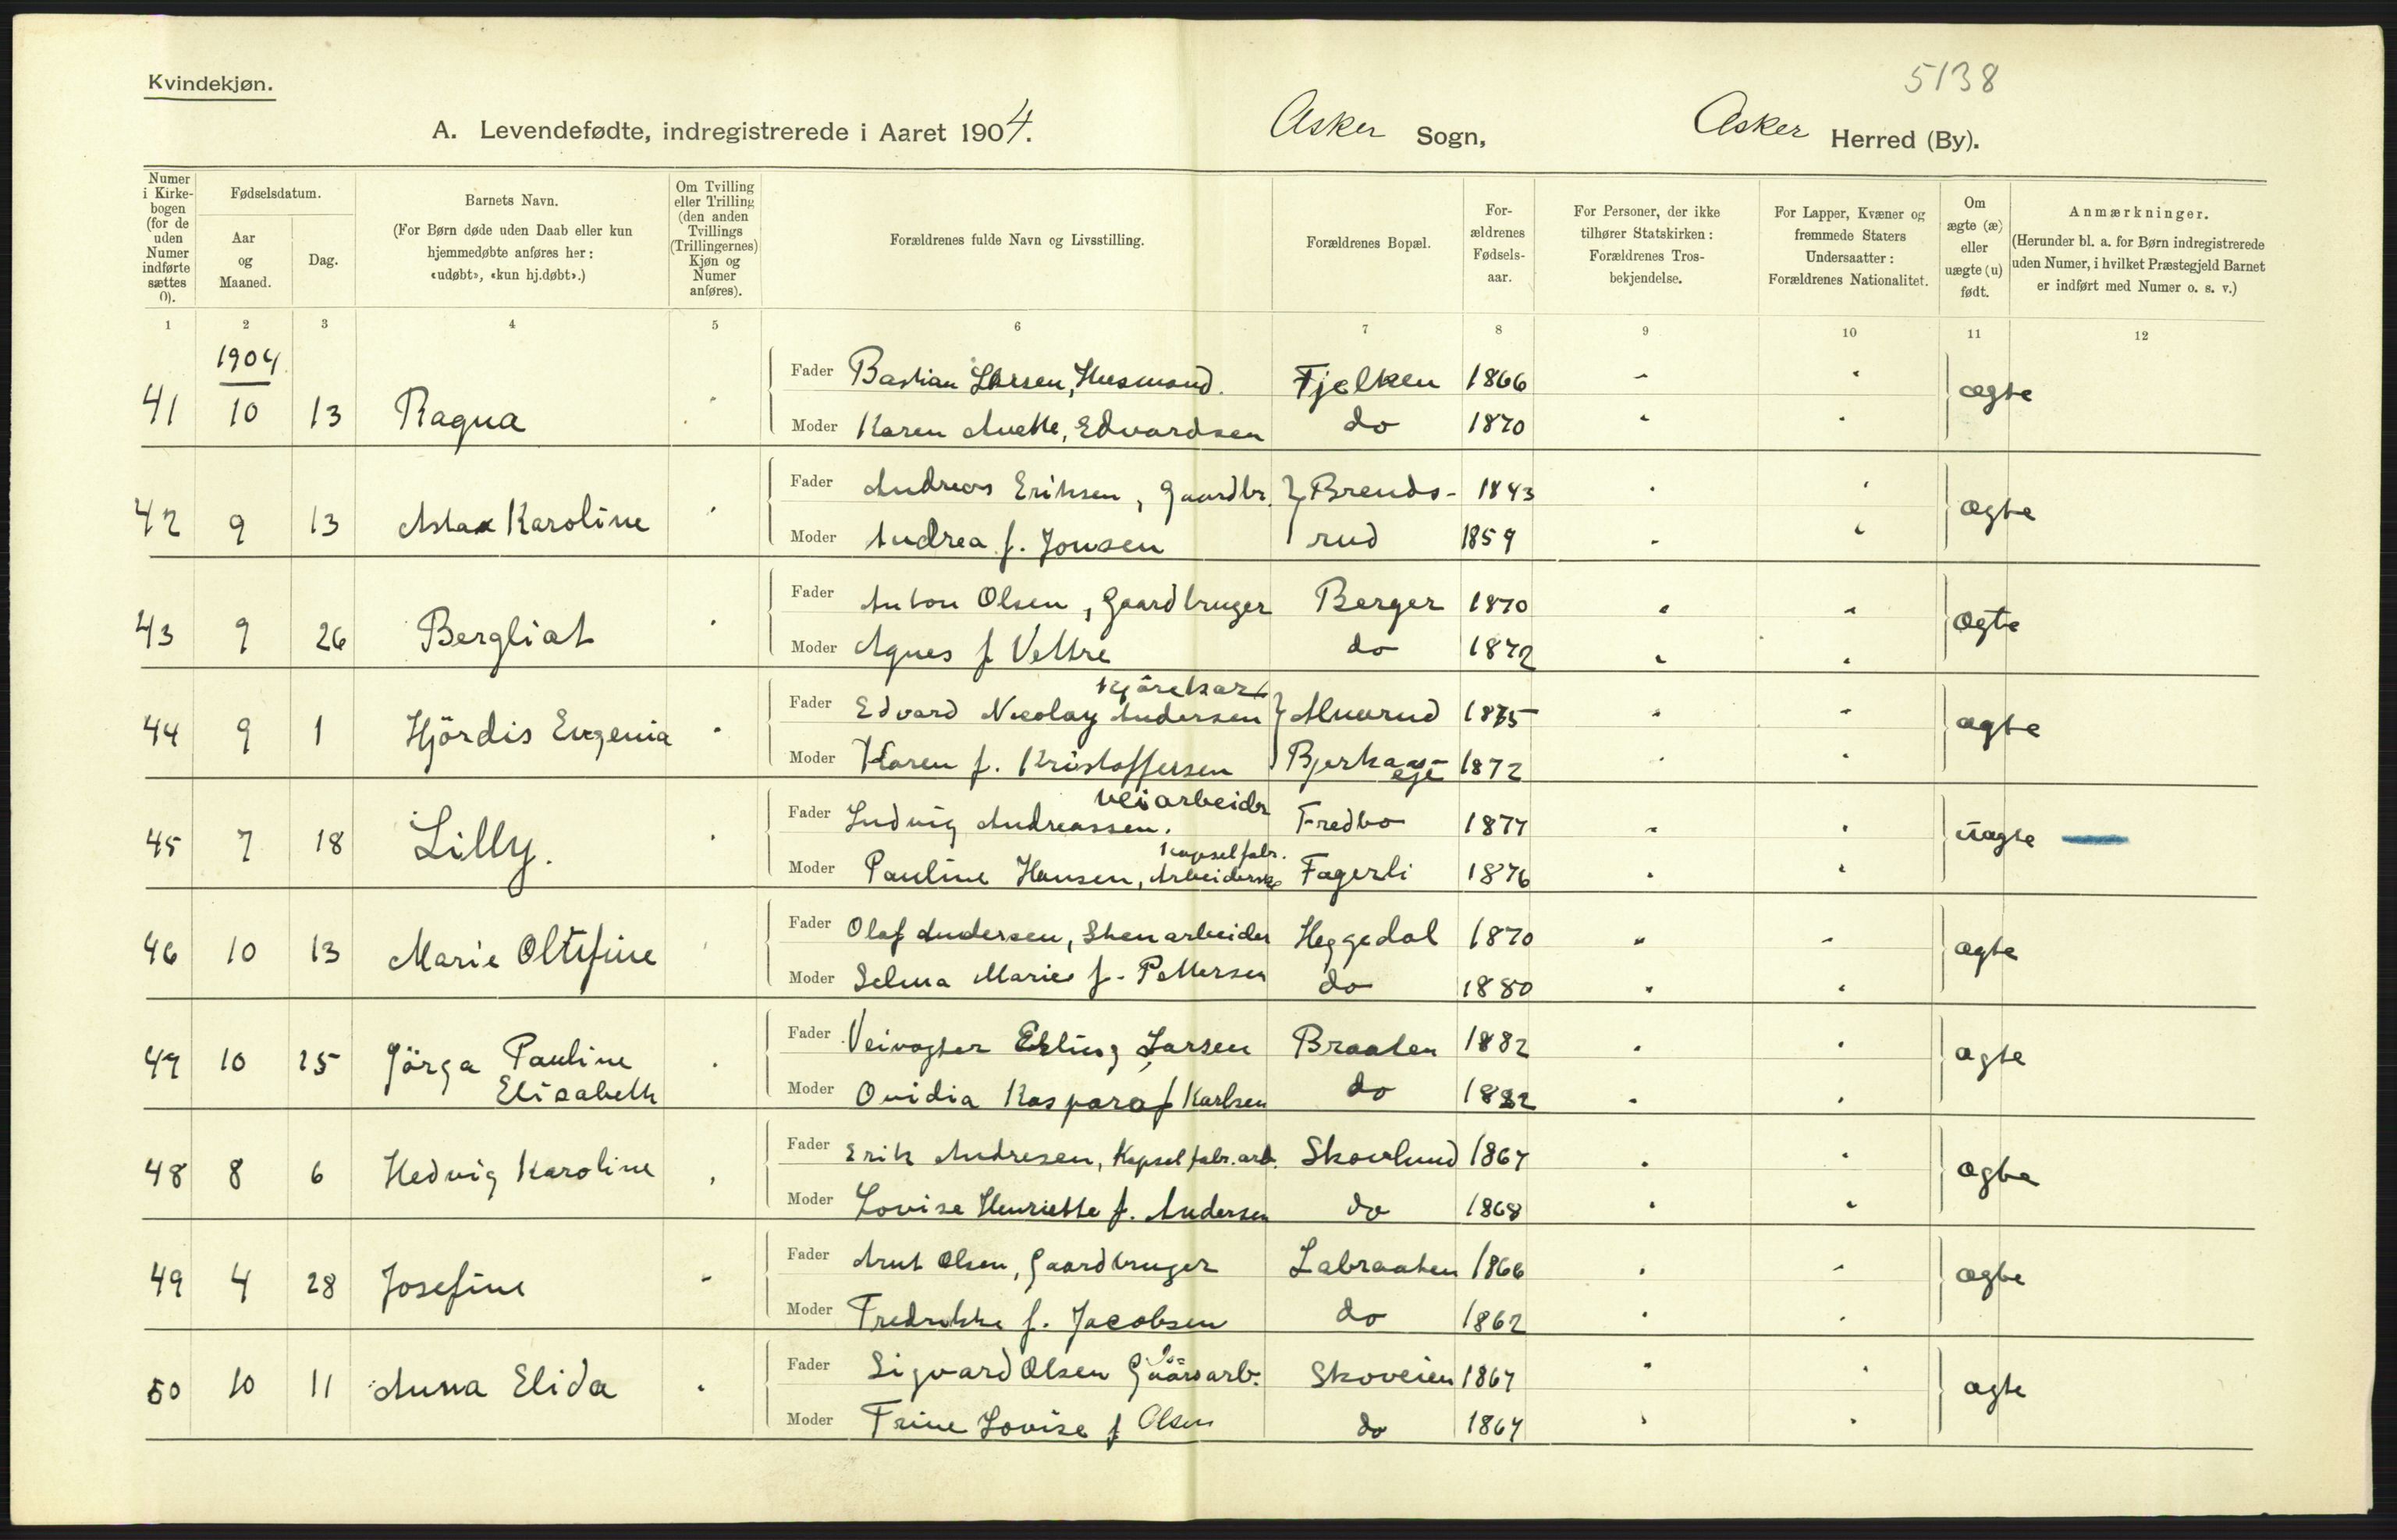 5138
Kvindekjøn.
A. Levendefødte, indregistrerede i Aaret 1904. Asker Sogn, Asker Herred (By).
Numer i Kirkebogen (for de uden Numer indførte sættes 0).
Fødselsdatum.
Aar og Maaned.
Dag.
Barnets Navn.
(For Børn døde uden Daab eller kun hjemmedøbte anføres her: «udøbt», «kun hj.døbt».)
Om Tvilling eller Trilling (den anden Tvillings (Trillingernes) Kjøn og Numer anføres).
Forældrenes fulde Navn og Livsstilling.
Forældrenes Bopæl.
Forældrenes Fødselsaar.
For Personer, der ikke tilhører Statskirken: Forældrenes Trosbekjendelse.
For Lapper, Kvæner og fremmede Staters Undersaatter: Forældrenes Nationalitet.
Om ægte (æ) eller uægte (u) født.
Anmærkninger.
(Herunder bl. a. for Børn indregistrerede uden Numer, i hvilket Præstegjeld Barnet er indført med Numer o. s. v.)
1 2 3 4 5 6 7 8 9 10 11 12
1904
Fader Bastian Larsen, Husmand. Fjelken 1866
41 10 13 Ragna ægte
Moder Karen Anette, Edvardsen do 1870
Fader Andreas Eriksen, Gaardbr. Brends- 1843
42 9 13 Asta Karoline ægte
Moder Andrea f. Jonsen rud 1859
Fader Anton Olsen, Gaardbruger Berger 1870
43 9 26 Bergliot ægte
Moder Agnes f Vettre do 1872
Kjørekar
Fader Edvard Nicolay Andersen 1875
44 9 1 Hjördis Eugenia ægte
Moder Karen f. Kristoffersen 1872
Veiarbeider
Fader Ludvig Andreassen. Fredbo 1877
45 7 18 Lilly. uægte
Kapselfabr.
Moder Pauline Hansen, Arbeiderske Fagerli 1876
Fader Olaf Andersen, Stenarbeider Heggedal 1870
46 10 13 Marie Oltefine ægte
Moder Selma Marie f. Pettersen do 1880
Fader Veivogter Erling Larsen Braaten 1882
47 10 15 Jörga Pauline Elisabeth ægte
Moder Ovidia Kaspara f Karlsen do 1882
Fader Erik Andresen, Kapselfabr.arb. Skovlund 1867
48 8 6 Hedvig Karoline ægte
Moder Lovise Henriette f. Andersen do 1868
Fader Arnt Olsen, Gaardbruger Labraaten 1866
49 4 28 Josefine ægte
Moder Fredrikke f. Jacobsen do 1862
Fader Sigvard Olsen Gaardsarb. Skoveien 1867
50 10 11 Anna Elida ægte
Moder Trine Lovise f Olsen do 1867